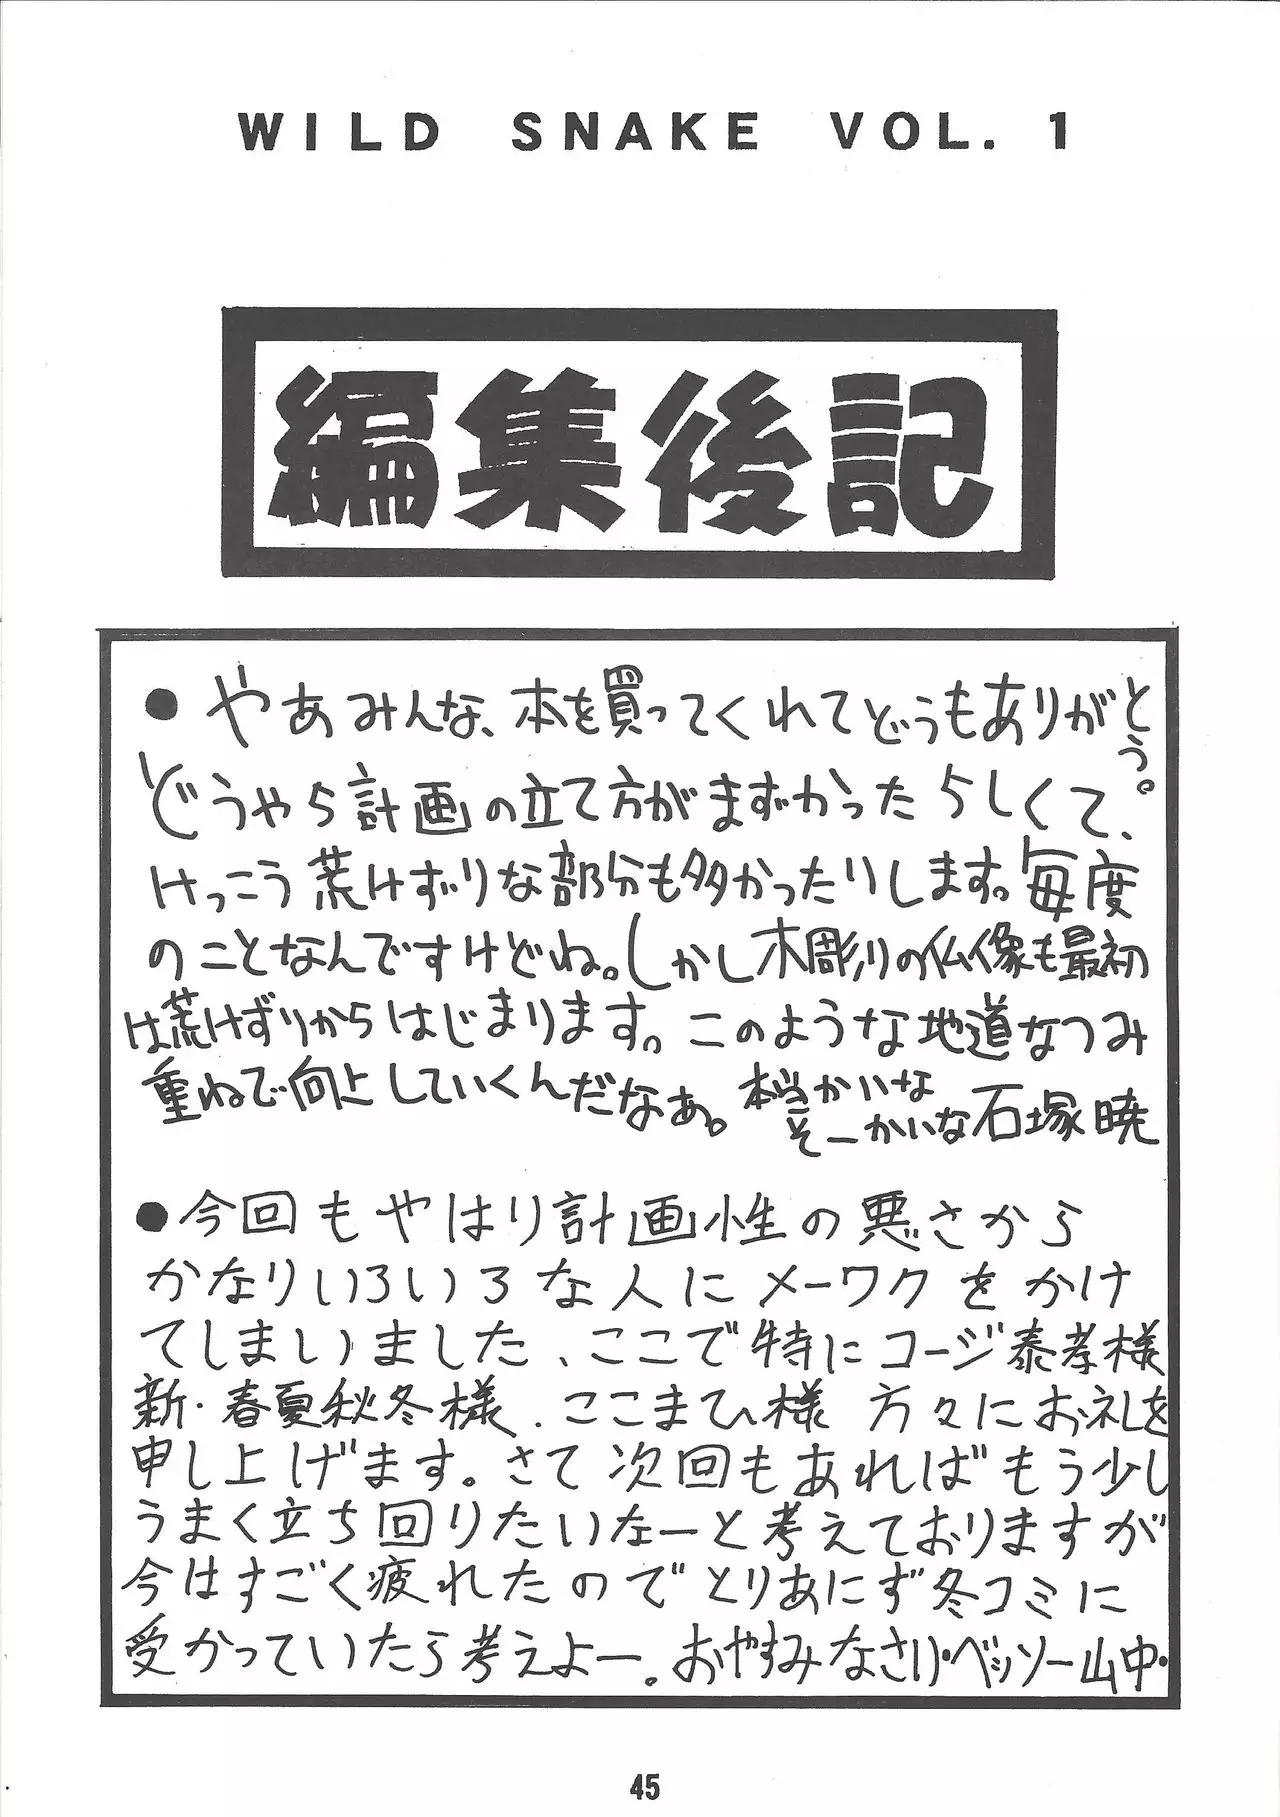 WILD SNAKE VOL. 1
編集後記
●やあみんな、本を買ってくれてどうもありがとう。
どうやら計画の立て方がまずかったらしくて、
けっこう荒けずりな部分も多かったりします。毎度
のことなんですけどね。しかし木彫りの仏像も最初
は荒けずりからはじまります。このような地道なつみ
重ねで向上していくんだなぁ。本当かいな
そーかいな石塚暁
●今回もやはり計画性の悪さから
かなりいろいろな人にメーワクをかけ
てしまいました、ここで特にコージ泰孝様
新・春夏秋冬様、ここまひ様 方々にお礼を
申し上げます。さて次回もあればもう少し
うまく立ち回りたいなーと考えておりますが
今はすごく疲れたのでとりあえず冬コミに
受かっていたら考えよー。おやすみなさい・ベッソー山中・
45